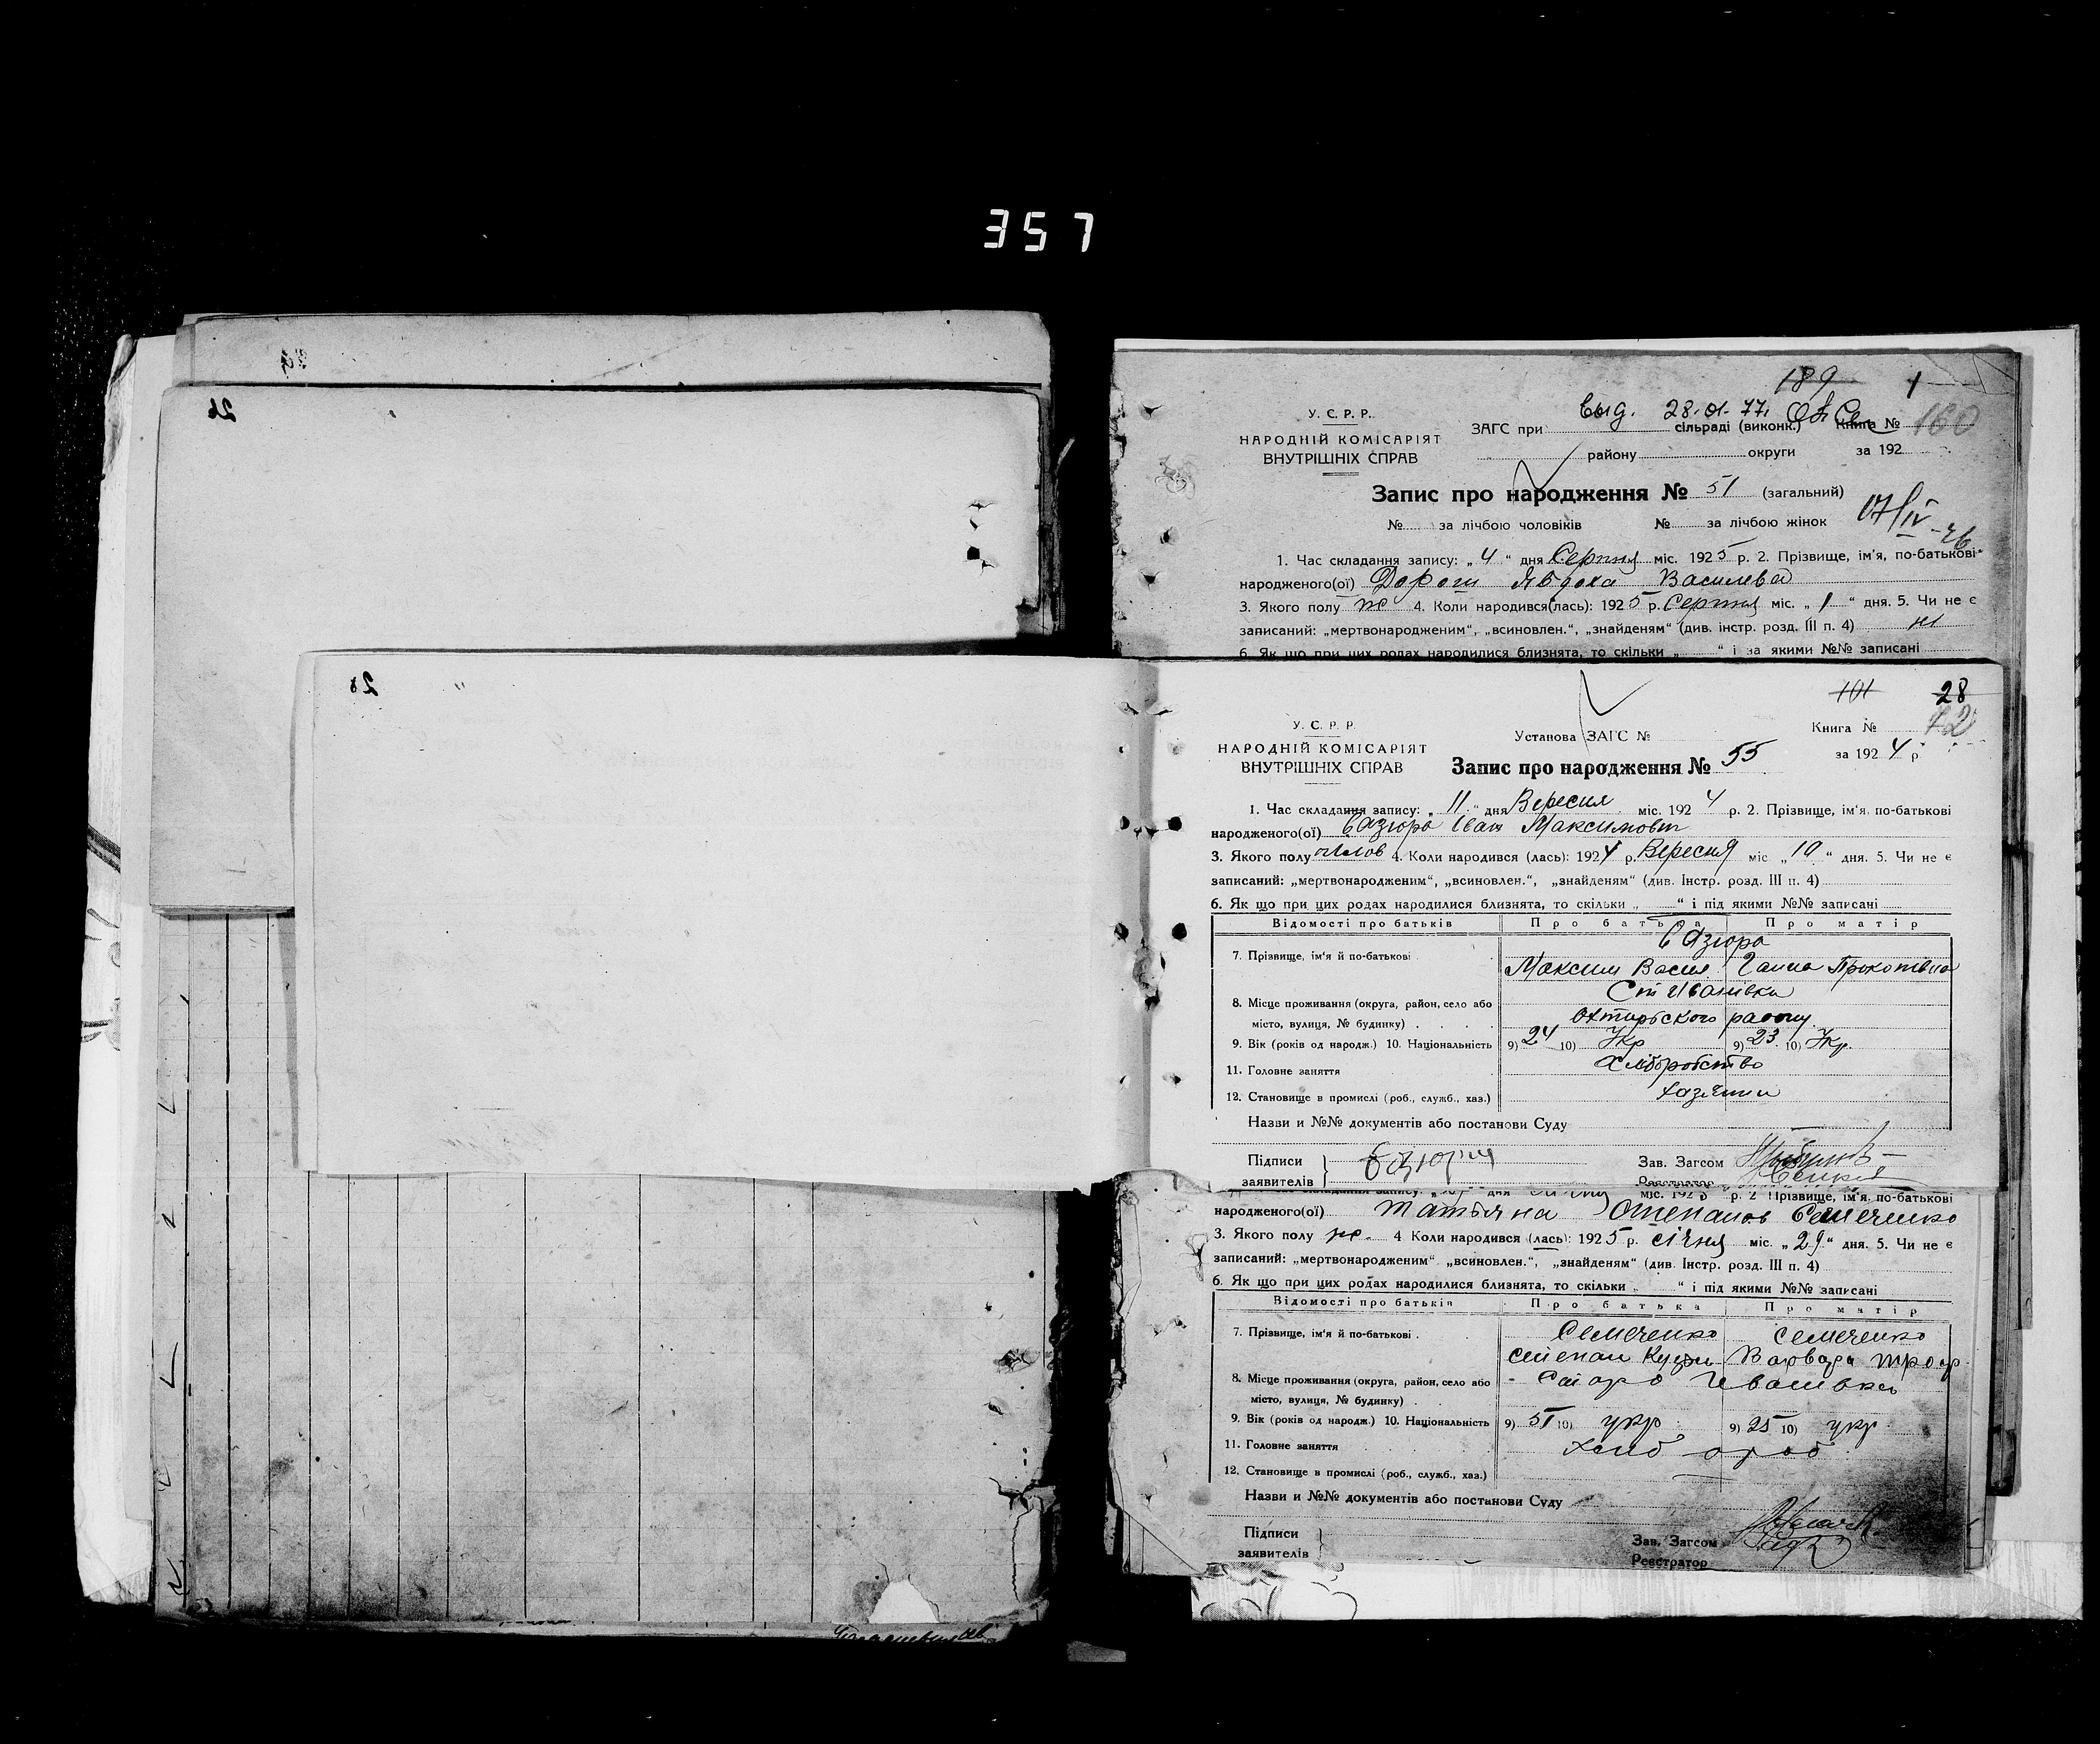 357
26
28
189 1
выд. 28.01.77.
У. С. Р. Р.
ЗАГС при сільраді (виконк.) Книга № 160
НАРОДНІЙ КОМІСАРІЯТ
ВНУТРІШНІХ СПРАВ
району округи за 192
Запис про народження № 51 (загальний)
№ за лічбою чоловіків № за лічбою жінок
17/IV-26
1. Час складання запису: „ 4 “ дня Серпня міс. 1925 р. 2. Прізвище, ім'я, по-батькові
народженого(ої) Дорош Явдоха Василева
3. Якого полу ж 4. Коли народився(лась): 1925 р. Серпня міс. „ 1 “ дня. 5. Чи не є
записаний: „мертвонародженим“, „всиновлен.“, „знайденям“ (див. інстр. розд. III п. 4) ні
6. Як що при цих родах народилися близнята, то скільки „ “ і за якими №№ записані
101 28
У. С. Р. Р.
Установа ЗАГС № Книга № 42
НАРОДНІЙ КОМІСАРІЯТ
ВНУТРІШНІХ СПРАВ
Запис про народження № 55 за 1924 р.
1. Час складання запису: „ 11 “ дня Вересня міс. 1924 р. 2. Прізвище, ім'я, по-батькові
народженого(ої) Базюра Іван Максимовт
3. Якого полу чолов 4. Коли народився (лась): 1924 р. Вересня міс „ 10 “ дня. 5. Чи не є
записаний: „мертвонародженим“, „всиновлен.“, „знайденям“ (див. Інстр. розд. III п. 4)
6. Як що при цих родах народилися близнята, то скільки „ “ і під якими №№ записані
Відомості про батьків Про батька Про матір
Базюра
7. Прізвище, ім'я й по-батькові
Максим Васил Ганна Прокопівна
8. Місце проживання (округа, район, село або Ст Иванівка
місто, вулиця, № будинку) Охтирського району
9. Вік (років од народж.) 10. Національність 9) 24 10) Укр 9) 23 10) Укр.
11. Головне заняття Хліборобство
12. Становище в промислі (роб., служб., хаз.) хазяини
Назви и №№ документів або постанови Суду
Підписи
заявителів
Зав. Загсом
Реєстратор
складання запису: дня міс. 1925 р. 2 Прізвище, ім'я, по-батькові
народженого(ої) Татьяна Степанов Семеченко
3. Якого полу ж. 4 Коли народився (лась): 1925 р. січня міс. „ 29 “ дня. 5. Чи не є
записаний: „мертвонародженим“ „всиновлен.“, „знайденям“ (див. Інстр. розд. III п. 4)
6. Як що при цих родах народилися близнята, то скільки „ “ і під якими №№ записані
Відомості про батьків Про батька Про матір
7. Прізвище, ім'я й по-батькові Семеченко Семеченко
Степан Кузьм Варвара Троф
8. Місце проживання (округа, район, село або Старо Ивановка
місто, вулиця, № будинку)
9. Вік (років од народж.) 10. Національність 9) 51 10) укр 9) 25 10) укр
11. Головне заняття хлібороб
12. Становище в промислі (роб., служб., хаз.)
Назви и №№ документів або постанови Суду
Підписи
заявителів
Зав. Загсом
Реєстратор